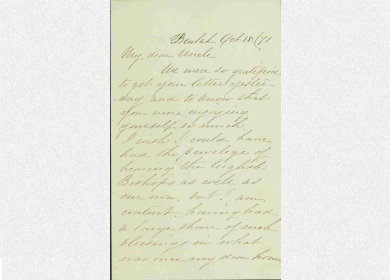 Beulah Oct 18/71
My dear Uncle
We were so gratified
to get your letter yester-
day, and to know that
you were enjoying
yourself so much,
I wish I could have
had the privelege of
hearing the English
Bishops as well as
our own, but I am
content having had
a large share of such
blessings in what
was once my dear home